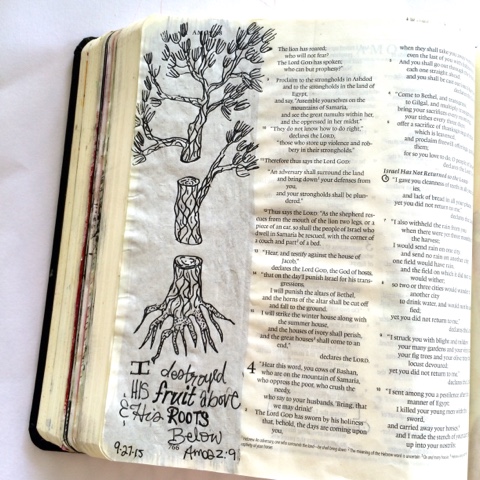 The lion has roared;
who will not fear?
The Lord GOD has spoken;
who can but prophesy?"
Proclaim to the strongholds in Ashdod
and to the strongholds in the land of
Egypt,
and say, "Assemble yourselves on the
mountains of Samaria,
and see the great tumults within her,
and the oppressed in her midst."
"They do not know how to do right,"
declares the LORD,
"those who store up violence and rob-
bery in their strongholds."
Therefore thus says the Lord GOD:
"An adversary shall surround the land
and bring down your defenses from
you,
and your strongholds shall be plun-
dered."
Thus says the LORD: "As the shepherd res-
cues from the mouth of the lion two legs, or a
piece of an ear, so shall the people of Israel who
dwell in Samaria be rescued, with the corner of
a couch and part of a bed.
"Hear, and testify against the house of
Jacob,"
declares the Lord GOD, the God of hosts,
"that on the day I punish Israel for his trans-
gressions,
I will punish the altars of Bethel,
and the horns of the altar shall be cut off
and fall to the ground.
I will strike the winter house along with
the summer house,
and the houses of ivory shall perish,
and the great houses shall come to an
end,"
declares the LORD.
4 "Hear this word, you cows of Bashan,
who are on the mountain of Samaria,
who oppress the poor, who crush the
needy,
who say to your husbands, 'Bring, that
we may drink!'
The Lord GOD has sworn by his holiness
that, behold, the days are coming upon
you,
I destroyed
HIS fruit above
& His ROOTS
Below
9.27.15 766 Amos 2:9
when they shall take you
even the last of you with
And you shall go out through
each one straight ahead;
and you shall be cast out
"Come to Bethel, and
to Gilgal, and multiply
bring your sacrifices every
your tithes every three days;
offer a sacrifice of thanksgiving
which is leavened,
and proclaim freewill offerings,
them;
for so you love to do,
declares
Israel Has Not Returned to the
"I gave you cleanness of teeth in
ies,
and lack of bread in all your places,
yet you did not return to me,"
"I also withheld the rain from you
when there were yet three
the harvest;
I would send rain on one city,
and send no rain on another city;
one field would have rain,
and the field on which it did not
would wither;
so two or three cities would wander
another city
to drink water, and would not be
fied;
yet you did not return to me,"
declares
"I struck you with blight and mildew;
your many gardens and your vineyards,
your fig trees and your olive trees
locust devoured;
yet you did not return to me,"
declares
"I sent among you a pestilence after the
manner of Egypt;
I killed your young men with the
sword,
and carried away your horses,
and I made the stench of your camp
up into your nostrils;